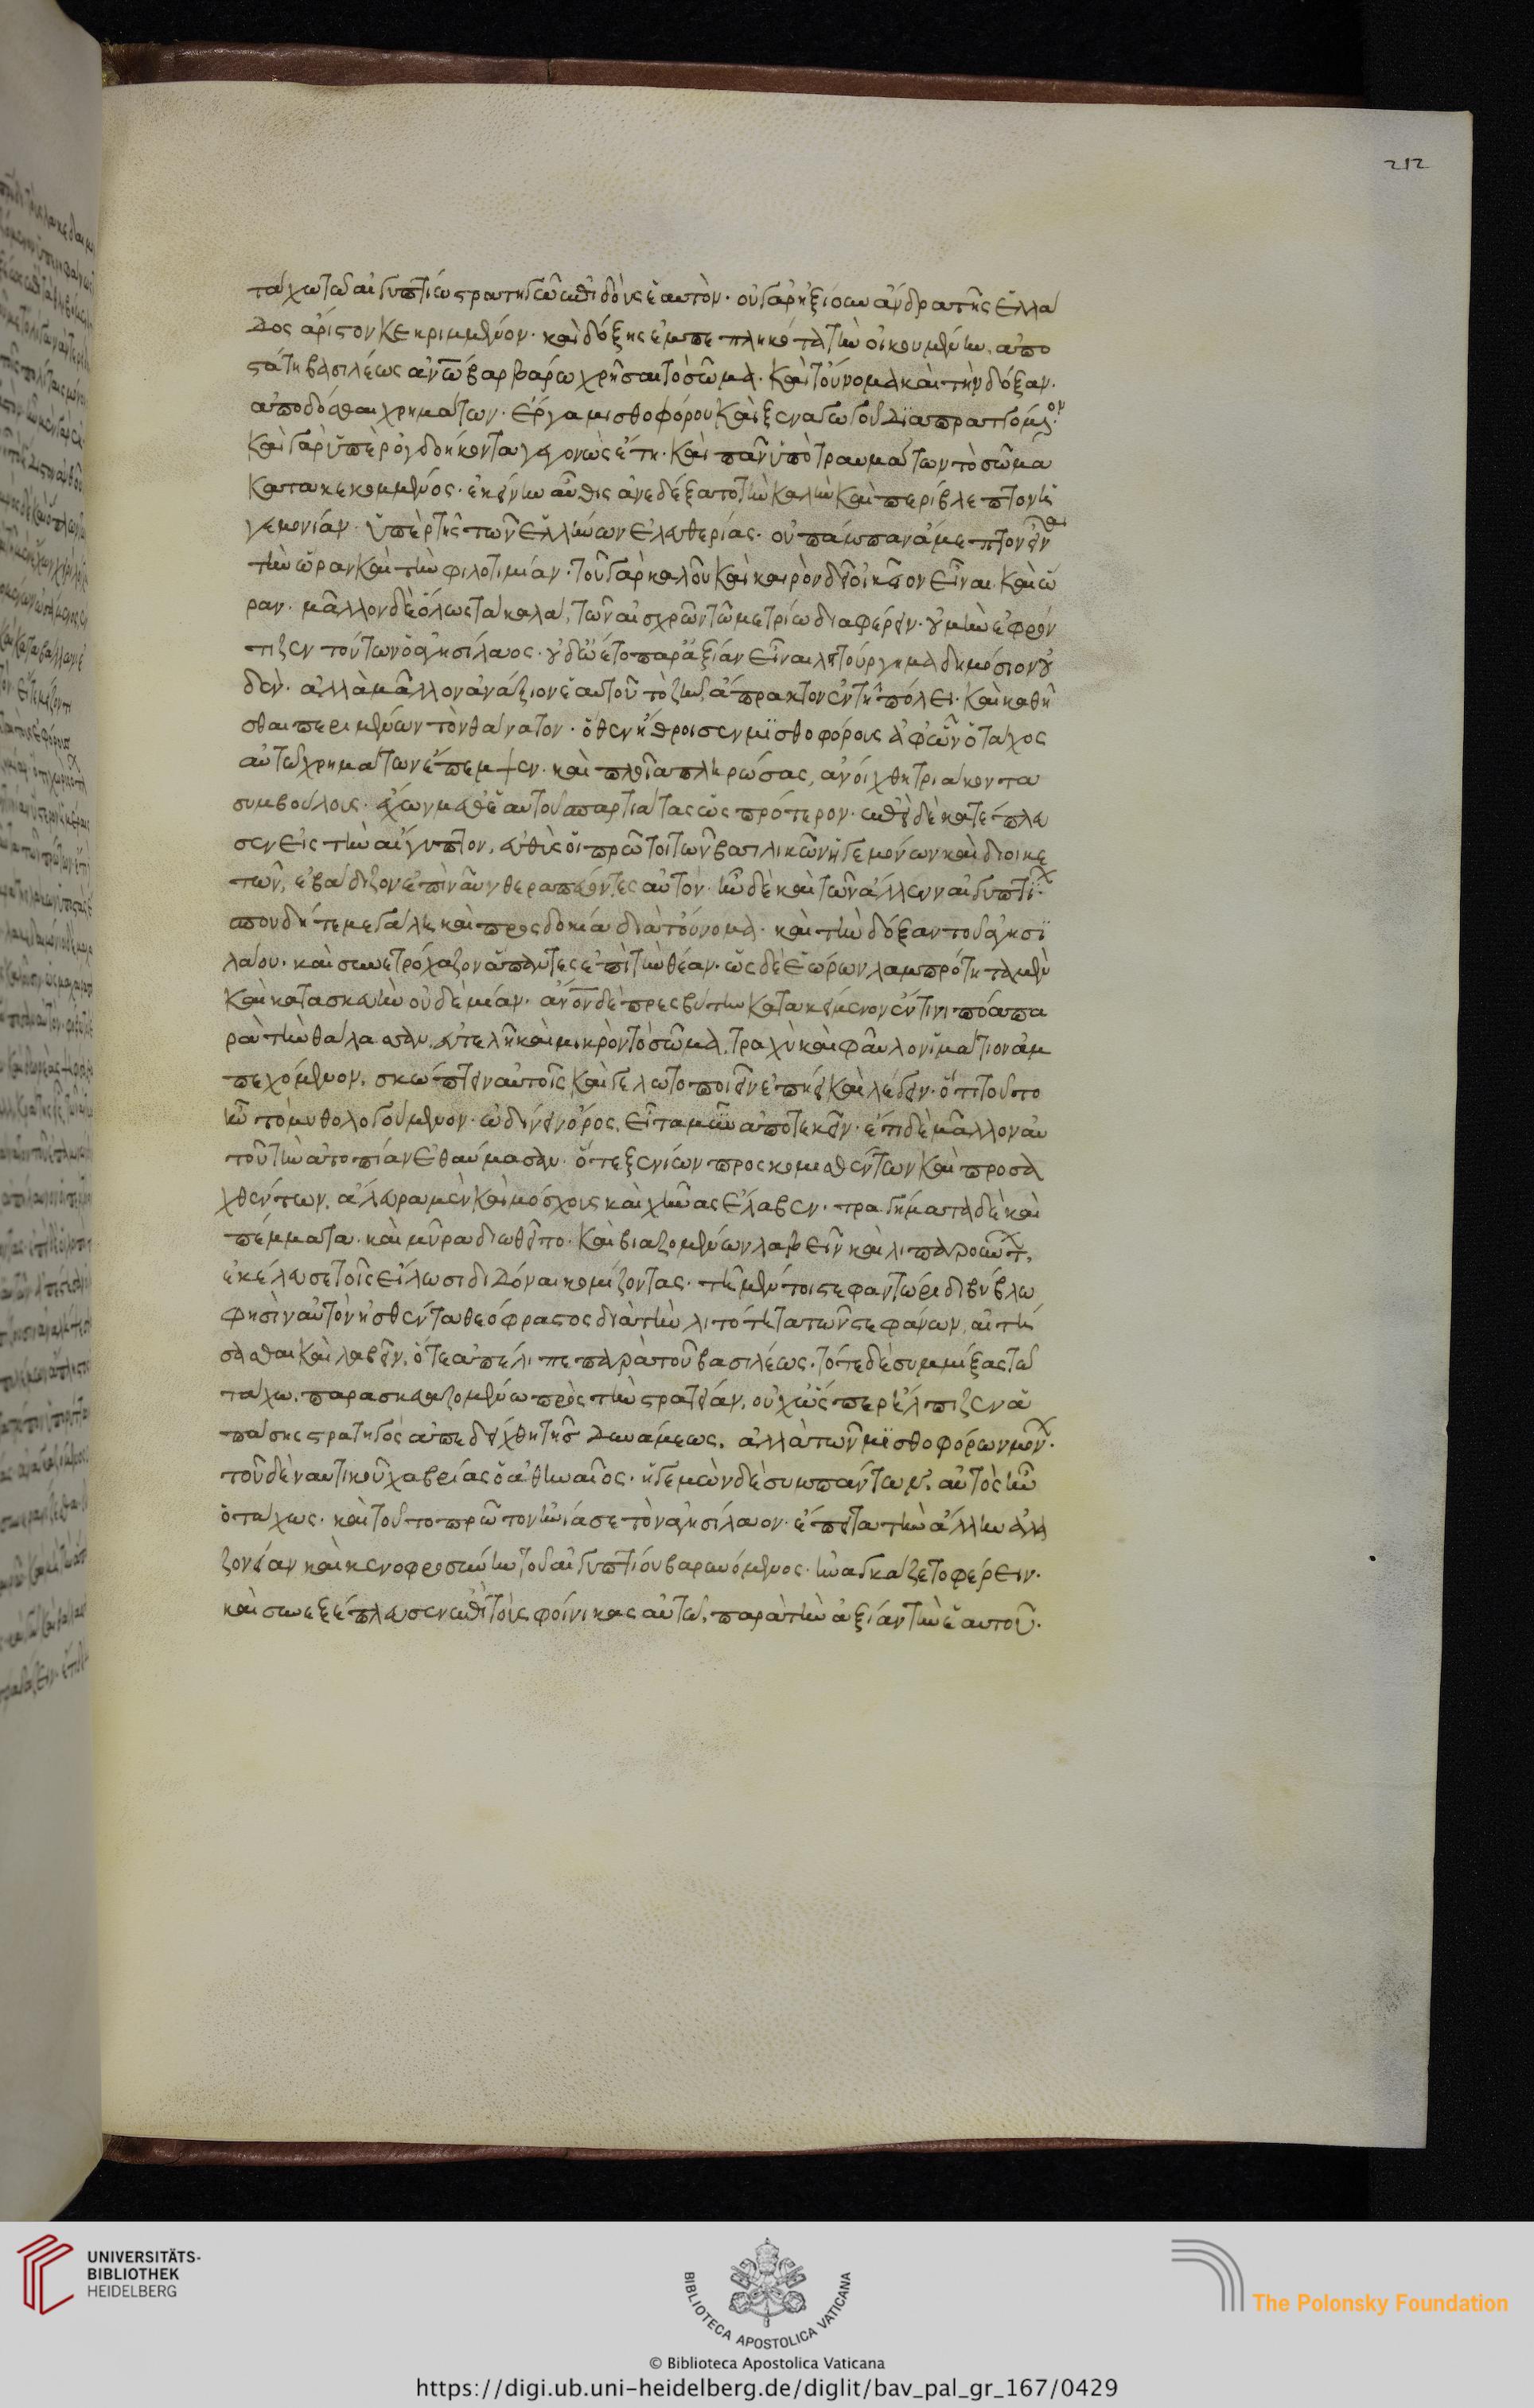 212
τάχω τῶ αἰγυπτίω στρατηγὸν ἐπιδοὺς ἑαυτὸν. οὐ γὰρ ἠξίουν ἄνδρα τῆς ἑλλά
δος ἄριστον κεκριμμένον. καὶ δόξης ἐμπεπληκότα τὴν οἰκουμένην. ἀπο
στάτη βασιλέως ἀνῶ βαρβάρω χρῆσαι τὸ σῶμα. καὶ τοὔνομα καὶ τὴν δόξαν.
ἀποδόσθαι χρημάτων. ἔργα μισθοφόρου καὶ ξεναγωγοῦ διαπραττόμενον.
καὶ γὰρ ὑπὲρ ὀγδοήκοντα γεγονὼς ἔτη. καὶ πᾶν ὑπὸ τραυμάτων τὸ σῶμα
κατακεκομμένος. ἐκείνην αὖθις ἀνεδέξατο τὴν καλὴν καὶ περίβλεπτον ἡ
γεμονίαν. ὑπὲρ τῆς τῶν ἑλλήνων ἐλευθερίας. οὐ πάμπαν ἄμεπτον εἶναι
τὴν ὥραν καὶ τὴν φιλοτιμίαν. τοῦ γὰρ καλοῦ καὶ καιρὸν δὴ οἰκεῖον εἶναι καὶ ὥ
ραν. μᾶλλον δὲ ὅλως τὰ καλά, τῶν αἰσχρῶν τῶ μετρίω διαφέρειν. οὐ μὴν ἐφρόν
τιζεν τούτων ὁ ἀγησίλαος. οὐδ' ὤετο παρ' ἀξίαν εἶναι λειτούργημα δημόσιον οὐ
δὲν. ἀλλὰ μᾶλλον ἀνάξιον ἑαυτοῦ τὸ ζῆν ἄπρακτον ἐν τῇ πόλει. καὶ καθῆ
σθαι περιμένων τὸν θάνατον. ὅθεν ἤθροισεν μισθοφόρους ἀφ' ὧν ὁ τάχος
αὐτῶ χρημάτων ἔπεμψεν. καὶ πλοῖα πληρώσας, ἀνοίχθη τριάκοντα
συμβούλους. ἔχων μεθ' ἑαυτοῦ σπαρτιάτας ὡς πρότερον. ἐπεὶ δὲ κατέπλευ
σεν εἰς τὴν αἴγυπτον, εὐθὺς οἱ πρῶτοι τῶν βασιλικῶν ἡγεμόνων καὶ διοικη
τῶν, ἐβάδιζον ἐπὶ ναῦν θεραπεύοντες αὐτόν. ἦν δὲ καὶ τῶν ἄλλων αἰγυπτίων
σπουδή τε μεγάλη καὶ προσδοκία διὰ τοὔνομα. καὶ τὴν δόξαν τοῦ ἀγησι
λάου. καὶ συνετρόχαζον ἅπαντες ἐπὶ τὴν θέαν. ὡς δὲ ἑώρων λαμπρότητα μὲν
καὶ κατασκευὴν οὐδεμίαν. ἄνον δὲ πρεσβύτην κατακείμενον ἔν τινι πόα πα
ρὰ τὴν θάλασσαν, εὐτελῆ καὶ μικρὸν τὸ σῶμα, τραχὺ καὶ φαῦλον ἱμάτιον ἀμ
πεχόμενον, σκώπτειν αὐτοῖς καὶ γελωτοποιεῖν ἐπῄει καὶ λέγειν. ὅτι τοῦτο
ἦν τὸ μυθολογούμενον. ὠδίνειν ὄρος, εἶτα μῦν ἀποτεκεῖν. ἔτι δὲ μᾶλλον αὐ
τοῦ τὴν ἀτοπίαν ἐθαύμασαν. ὅτε ξενίων προσκομισθέντων καὶ προσα
χθέντων, ἄλευρα μὲν καὶ μόσχους καὶ χῆνας ἔλαβεν. τραγήματα δὲ καὶ
πέμματα. καὶ μῦρα διωθεῖτο. καὶ βιαζομένων λαβεῖν καὶ λιπαρούντων,
ἐκέλευσε τοῖς εἵλωσι διδόναι κομίζοντας. τῇ μέντοι στεφανωτρίδι βύβλω
φησὶν αὐτὸν ἡσθέντα θεόφραστος διὰ τὴν λιτότητα τῶν στεφάνων, αἰτή
σασθαι καὶ λαβεῖν, ὅτε ἀπέλιπε παρὰ τοῦ βασιλέως. τότε δὲ συμμίξας τῶ
τάχω. παρασκευαζομένω πρὸς τὴν στρατείαν, οὐχ ὥσπερ ἤλπιζεν ἁ
πάσης στρατηγὸς ἀπεδείχθη τῆς δυνάμεως, ἀλλὰ τῶν μισθοφόρων μόνων.
τοῦ δὲ ναυτικοῦ χαβρίας ὁ ἀθηναῖος. ἡγεμὼν δὲ συμπάντων, αὐτὸς ἦν
ὁ τάχως. καὶ τοῦτο πρῶτον ἠνίασε τὸν ἀγησίλαον. ἔπειτα τὴν ἄλλην ἀλα
ζονείαν καὶ κενοφροσύνην τοῦ αἰγυπτίου βαρυνόμενος. ἠναγκάζετο φέρειν.
καὶ συνεξέπλευσεν ἐπὶ τοὺς φοίνικας αὐτῶ, παρὰ τὴν ἀξίαν τὴν ἑαυτοῦ.
UNIVERSITÄTS-
BIBLIOTHEK
HEIDELBERG
BIBLIOTECA APOSTOLICA VATICANA
The Polonsky Foundation
© Biblioteca Apostolica Vaticana
https://digi.ub.uni-heidelberg.de/diglit/bav_pal_gr_167/0429